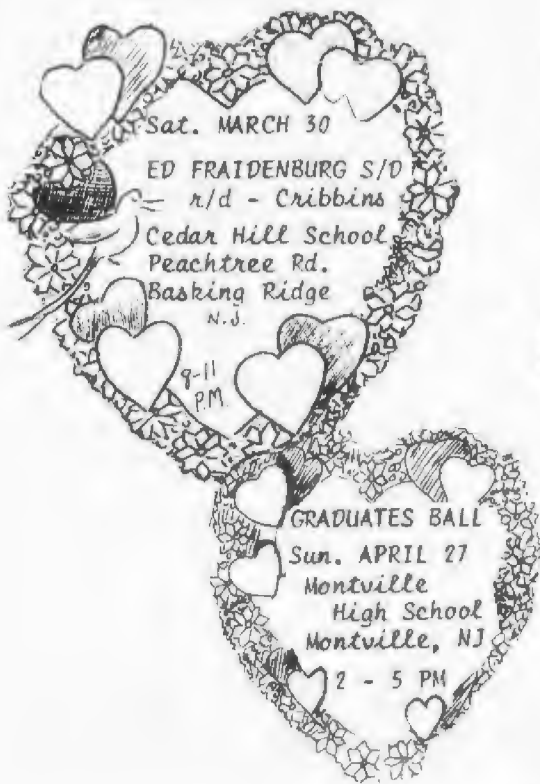 Sat. MARCH 30
ED FRAIDENBURG S/D
r/d - Cribbins
Cedar Hill School
Peachtree Rd.
Basking Ridge
N.J.
8-11
P.M.
GRADUATES BALL
Sun. APRIL 27
Montville
High School
Montville, NJ
2 - 5 PM